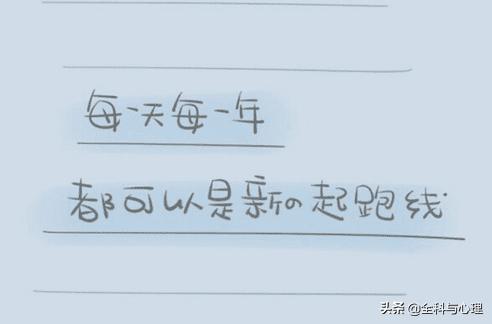 每一天每一年
都可以是新の起跑线
头条 @全科与心理